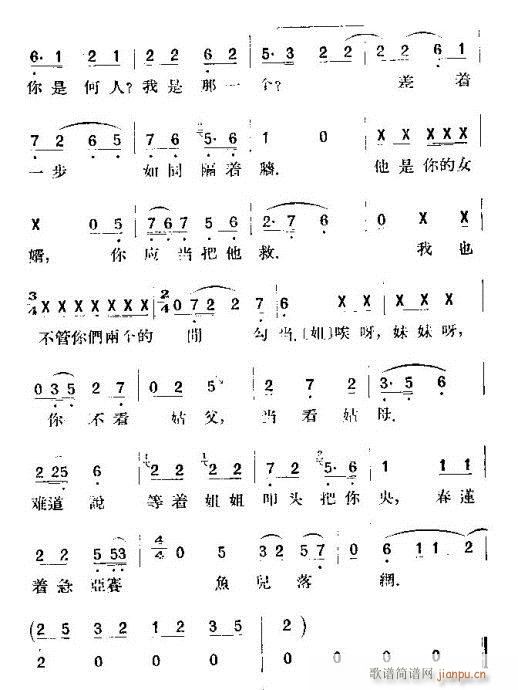 6· 1 2 1 | 2 2 6 2 | 5· 3 2 2 | 2 2 6 1 |
你是何人?我是那一个? 差着
7 2 6 5 | 7 6 7 2 5· 6 | 1 0 | X X X X X |
一步 如同隔着牆. 他是你的女
X 0 5 | 7 6 7 5 6 | 2· 7 6 | 0 X X |
婿, 你应当把他救. 我也
3/4 X X X X X X X | 2/4 0 7 2 2 | 0 7 | 6 X X | X X X |
不管你們兩个的 間 勾当.〔姐〕唉呀,妹妹呀,
0 3 5 2 7 | 0 5 2 5 | 2 7 2 | 3· 5 6 |
你不看姑父, 当看姑母.
2 2 5 6 | 2 2 2 2 | 7 2 2 5· | 0 1 1 |
难道說 等着姐姐叩头把你央,春蓮
2 2 5 5 3 | 4/4 0 0 5 3 2 3 5 7 | 0 6 1 1 2 |
着急亞賽 魚兒落 網.
( 2 5 3 2 1 2 3 5 | 2 )
2 0 0 0 | 0 0 0 0
歌谱简谱网
jianpu.cn